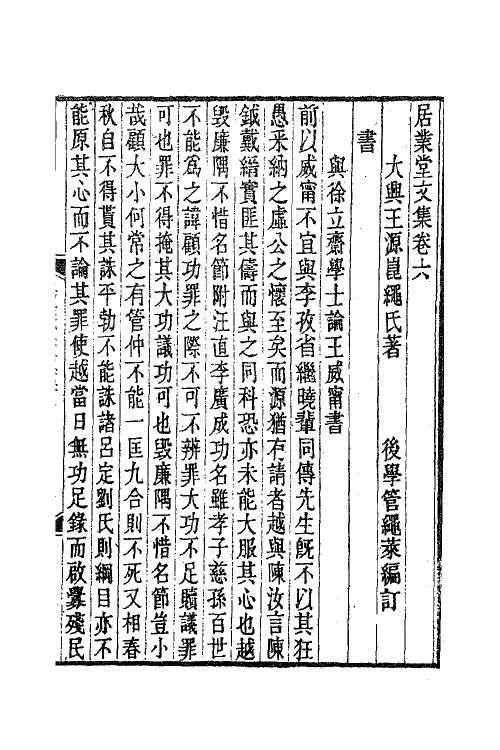 居業堂文集卷六
大興王源崑繩氏著　後學管繩萊編訂
書
與徐立齋學士論王威甯書
前以威甯不宜與李孜省繼曉輩同傳先生既不以其狂
愚采納之虛公之懷至矣而源猶有請者越與陳汝言陳
鉞戴縉實匪其儔而與之同科恐亦未能大服其心也越
毀廉隅不惜名節附汪直李廣成功名雖孝子慈孫百世
不能爲之諱顧功罪之際不可不辨罪大功不足贖議罪
可也罪不得掩其大功議功可也毀廉隅不惜名節豈小
哉顧大小何常之有管仲不能一匡九合則不死又相春
秋自不得貰其誅平勃不能誅諸呂定劉氏則綱目亦不
能原其心而不論其罪使越當日無功足錄而啟釁殘民